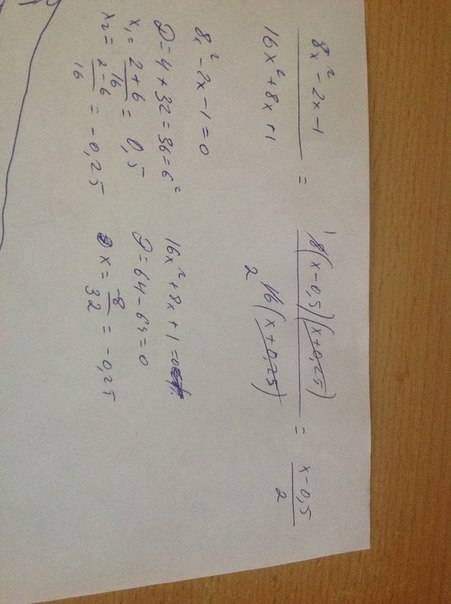 8x² - 2x - 1 / 16x² + 8x + 1 = ¹8(x - 0,5)(x + 0,25) / ₂16(x + 0,25) = x - 0,5 / 2
8x² - 2x - 1 = 0
D = 4 + 32 = 36 = 6²
x₁ = 2 + 6 / 16 = 0,5
x₂ = 2 - 6 / 16 = -0,25
16x² + 8x + 1 = 0
D = 64 - 64 = 0
x = -8 / 32 = -0,25